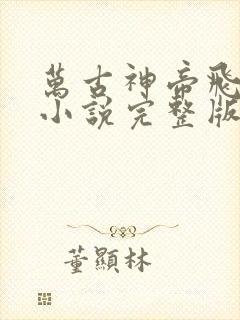 萬古神帝飛
小說完整版
董顯林